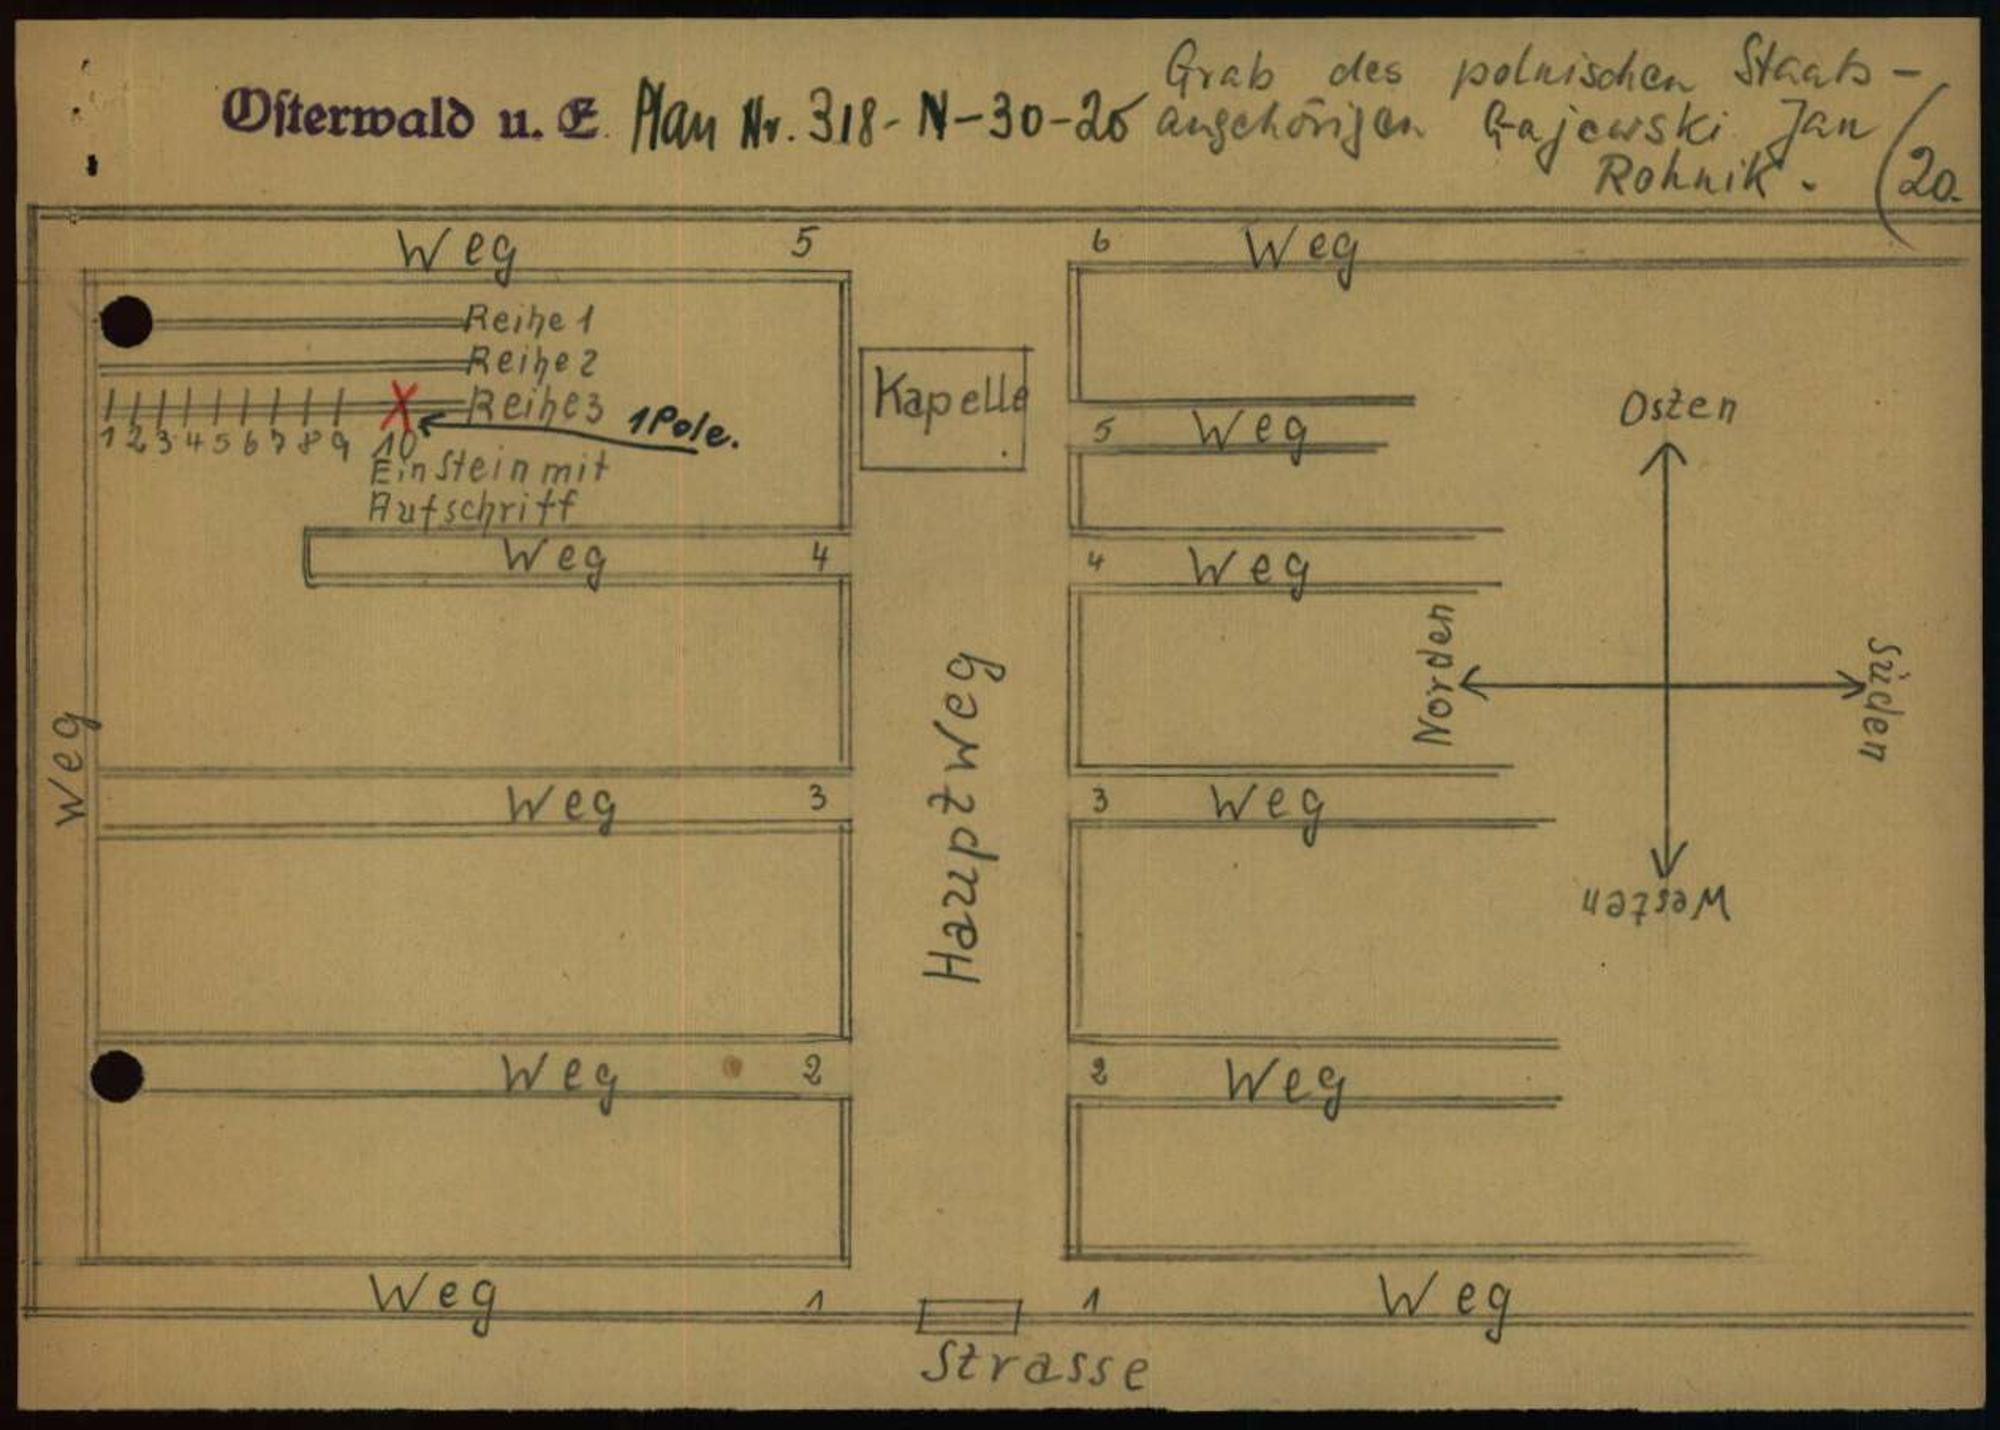 Osterwald u. E. Plan Nr. 318-N-30-25
Grab des polnischen Staats-
angehörigen Gajewski Jan
Rohnik.
(20.
Weg 5
6 Weg
Reihe 1
Reihe 2
Reihe 3
1 Pole.
1 2 3 4 5 6 7 8 9 10
Ein Stein mit
Aufschrift
Kapelle
5 Weg
Weg 4
4 Weg
Osten
Norden
Süden
Westen
Weg
Hauptweg
Weg 3
3 Weg
Weg 2
2 Weg
Weg 1
1 Weg
Strasse